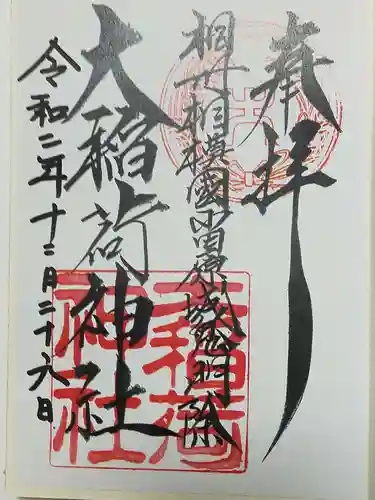 奉拝
相模國小田原城鬼門除
大稲荷神社
令和二年十二月二十六日
大稲荷
神社